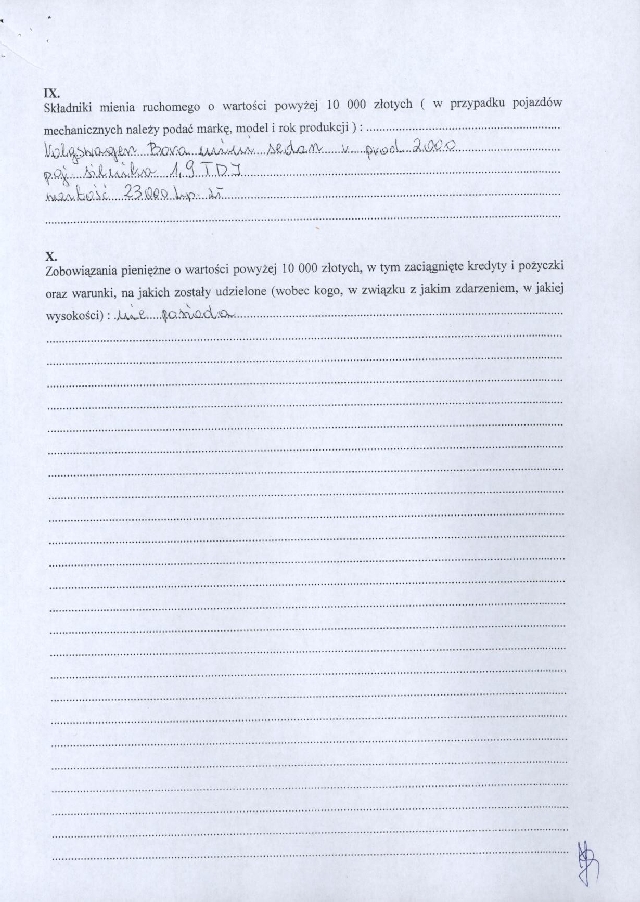 IX.
Składniki mienia ruchomego o wartości powyżej 10 000 złotych ( w przypadku pojazdów
mechanicznych należy podać markę, model i rok produkcji ) :
Volgswagen Bora sedan r prod 2000
poj silnika 1,9 TDJ
wartość 23000 tys zł
X.
Zobowiązania pieniężne o wartości powyżej 10 000 złotych, w tym zaciągnięte kredyty i pożyczki
oraz warunki, na jakich zostały udzielone (wobec kogo, w związku z jakim zdarzeniem, w jakiej
wysokości) : nie posiada